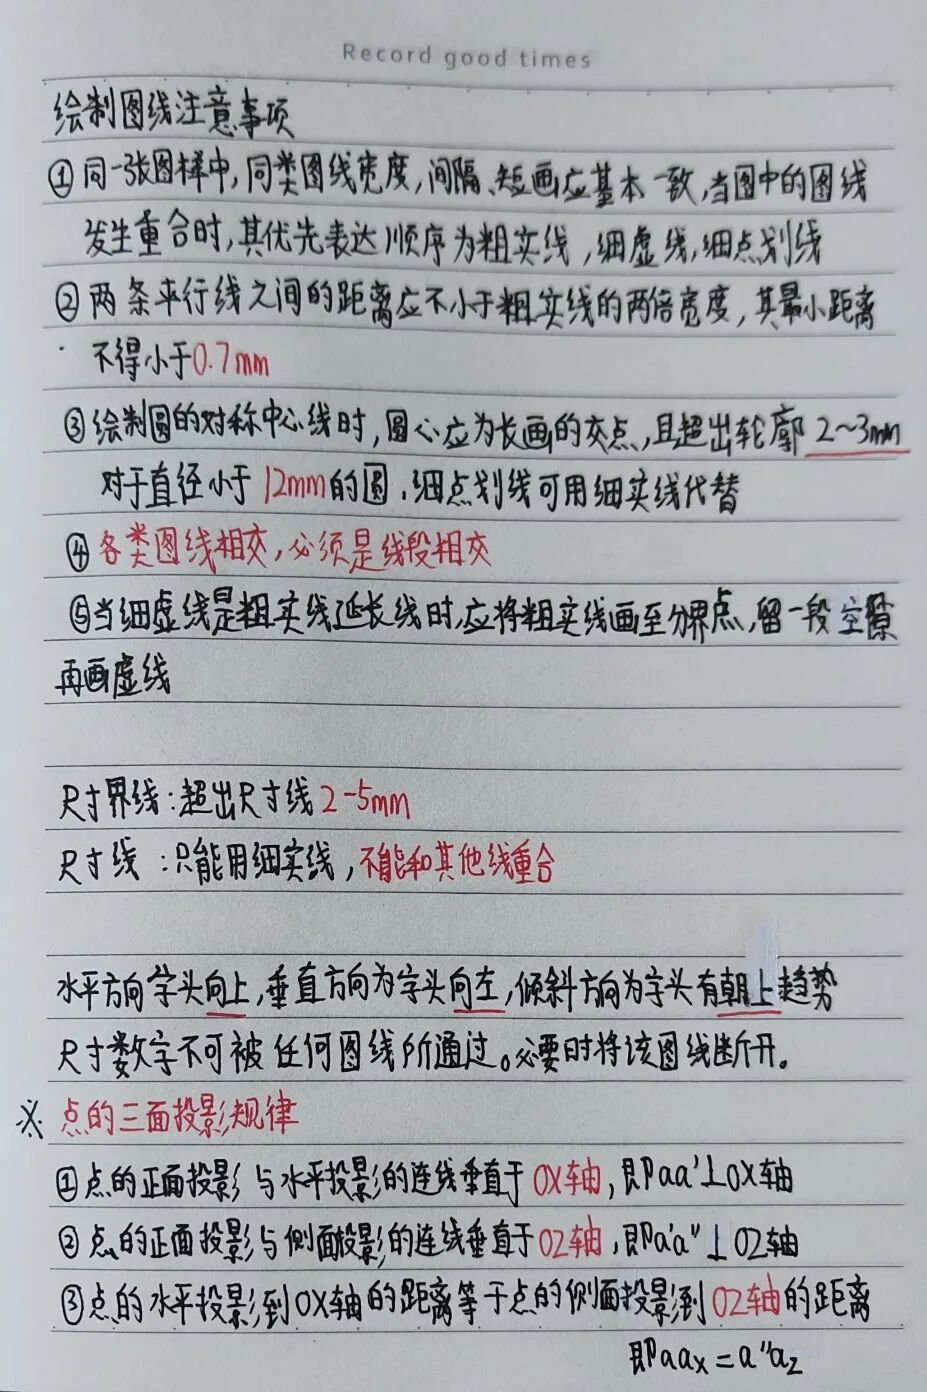 Record good times
绘制图线注意事项
①同一张图样中,同类图线宽度,间隔、短画应基本一致,当图中的图线
发生重合时,其优先表达顺序为粗实线,细虚线,细点划线
②两条平行线之间的距离应不小于粗实线的两倍宽度,其最小距离
不得小于0.7mm
③绘制圆的对称中心线时,圆心应为长画的交点,且超出轮廓2~3mm
对于直径小于12mm的圆,细点划线可用细实线代替
④各类图线相交,必须是线段相交
⑤当细虚线是粗实线延长线时,应将粗实线画至分界点,留一段空隙
再画虚线
尺寸界线:超出尺寸线2-5mm
尺寸线:只能用细实线,不能和其他线重合
水平方向字头向上,垂直方向为字头向左,倾斜方向为字头有朝上趋势
尺寸数字不可被任何图线所通过。必要时将该图线断开。
※ 点的三面投影规律
①点的正面投影与水平投影的连线垂直于OX轴,即aa'⊥OX轴
②点的正面投影与侧面投影的连线垂直于OZ轴,即a'a"⊥OZ轴
③点的水平投影到OX轴的距离等于点的侧面投影到OZ轴的距离
即aax=a"az